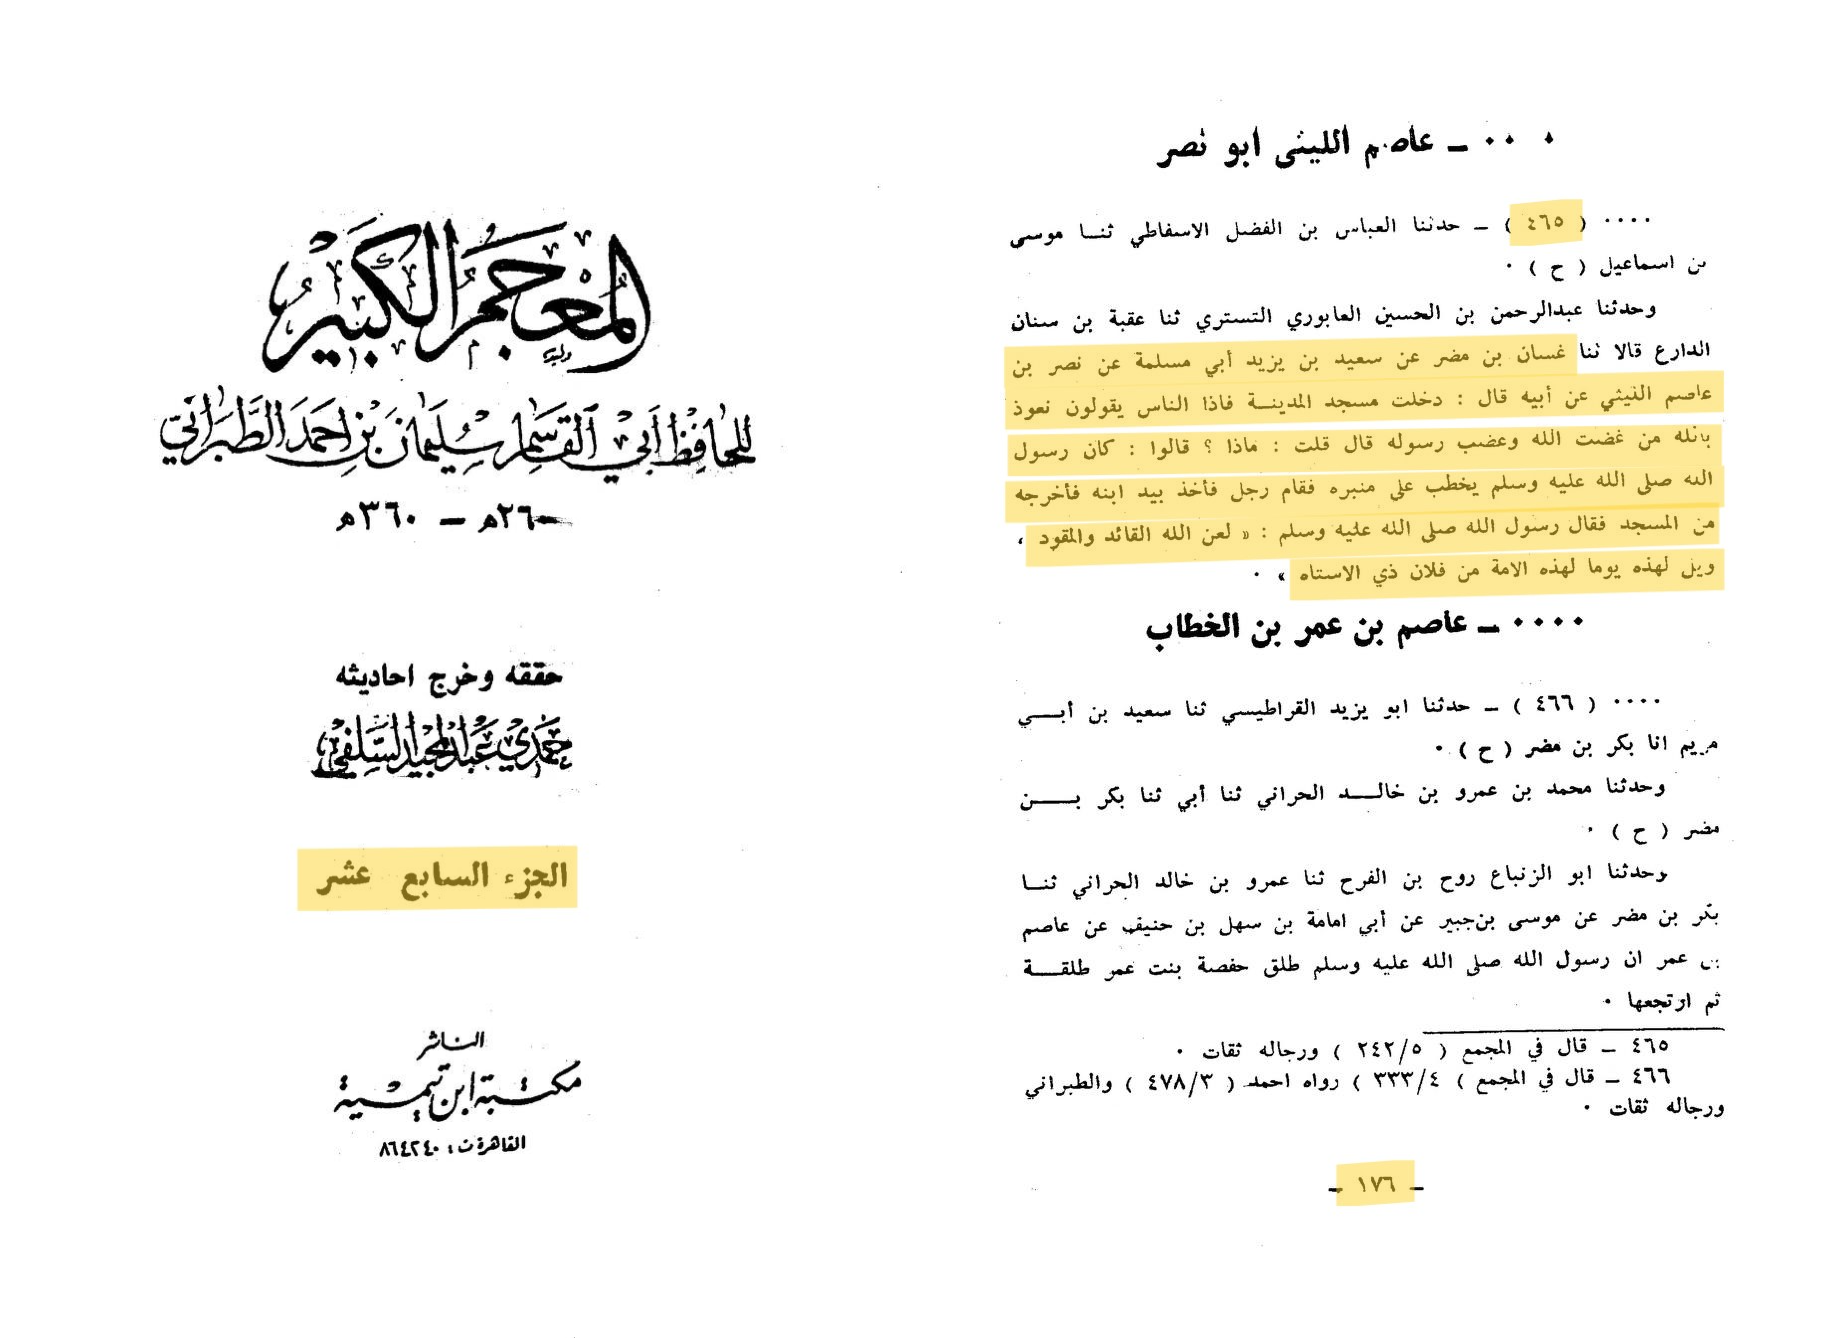 المعجم الكبير
للحافظ أبي القاسم سليمان بن أحمد الطبراني
٢٦٠هـ – ٣٦٠هـ
حققه وخرج احاديثه
حمدي عبد المجيد السلفي
الجزء السابع عشر
الناشر
مكتبة ابن تيمية
القاهرة ت : ٨٦٤٢٤٠
٠٠٠ – عاصم الليثى ابو نصر
٠٠٠٠ ( ٤٦٥ ) – حدثنا العباس بن الفضل الاسفاطي ثنـا موسى
بن اسماعيل ( ح ) ٠
وحدثنا عبدالرحمن بن الحسين العابوري التستري ثنا عقبة بن سنان
الدارع قالا ثنا غسان بن مضر عن سعيد بن يزيد أبي مسلمة عن نصر بن
عاصم الليثي عن أبيه قال : دخلت مسجد المدينـة فاذا الناس يقولون نعوذ
بالله من غضب الله وغضب رسوله قال قلت : ماذا ؟ قالوا : كان رسول
الله صلى الله عليه وسلم يخطب على منبره فقام رجل فأخذ بيد ابنه فأخرجه
من المسجد فقال رسول الله صلى الله عليه وسلم : « لعن الله القائد والمقود ،
ويل لهذه يوما لهذه الامة من فلان ذي الاستاه » ٠
٠٠٠٠ – عاصم بن عمر بن الخطاب
٠٠٠٠ ( ٤٦٦ ) – حدثنا ابو يزيد القراطيسي ثنا سعيد بن أبـــي
مريم انا بكر بن مضر ( ح ) ٠
وحدثنا محمد بن عمرو بن خالـــد الحراني ثنا أبي ثنا بكر بـــن
مضر ( ح ) ٠
وحدثنا ابو الزنباع روح بن الفرح ثنا عمرو بن خالد الحراني ثنـا
بكر بن مضر عن موسى بن جبير عن أبي امامة بن سهل بن حنيف عن عاصم
بن عمر ان رسول الله صلى الله عليه وسلم طلق حفصة بنت عمر طلقـــة
ثم ارتجعها ٠
٤٦٥ – قال في المجمع ( ٢٤٢/٥ ) ورجاله ثقات ٠
٤٦٦ – قال في المجمع ) ٣٣٣/٤ ) رواه احمد ( ٤٧٨/٣ ) والطبراني
ورجاله ثقات ٠
– ١٧٦ –